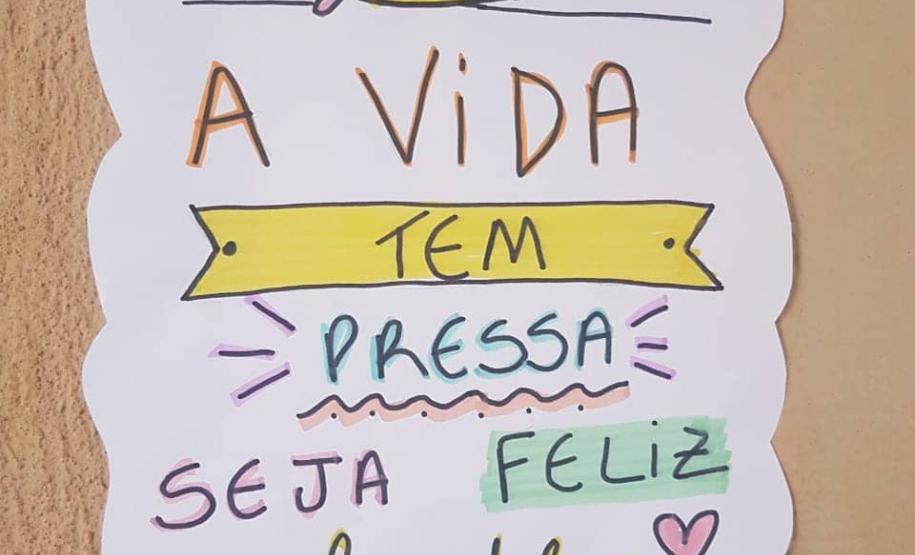 A ViDA
TEM
PRESSA
SEJA FELiZ